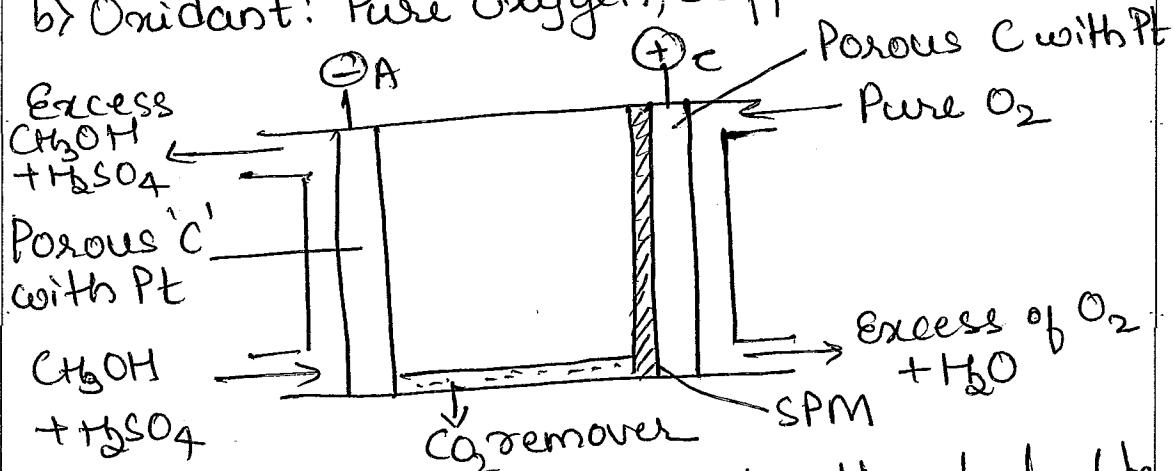 b) Oxidant: Pure Oxygen,
⊖A
⊕C
Porous C with Pt
Pure O2
Excess
CH3OH
+H2SO4
Porous 'C'
with Pt
CH3OH
+H2SO4
CO2 remover
SPM
Excess of O2
+H2O